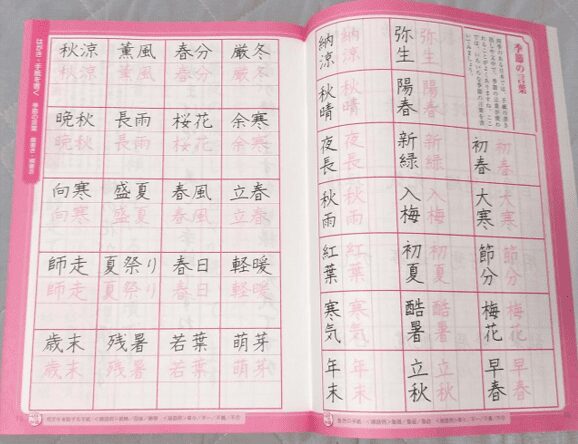 季節の言葉
初春 大寒 節分 梅花 早春
初春 大寒 節分 梅花 早春
弥生 陽春 新緑 入梅 初夏 酷暑 立秋
弥生 陽春 新緑 入梅 初夏 酷暑 立秋
納涼 秋晴 夜長 秋雨 紅葉 寒気 年末
納涼 秋晴 夜長 秋雨 紅葉 寒気 年末
はがき・手紙を書く 季節の言葉
秋涼 薫風 春分 厳冬
秋涼 薫風 春分 厳冬
晩秋 長雨 桜花 余寒
晩秋 長雨 桜花 余寒
向寒 盛夏 春風 立春
向寒 盛夏 春風 立春
師走 夏祭り 春日 軽暖
師走 夏祭り 春日 軽暖
歳末 残暑 若葉 萌芽
歳末 残暑 若葉 萌芽